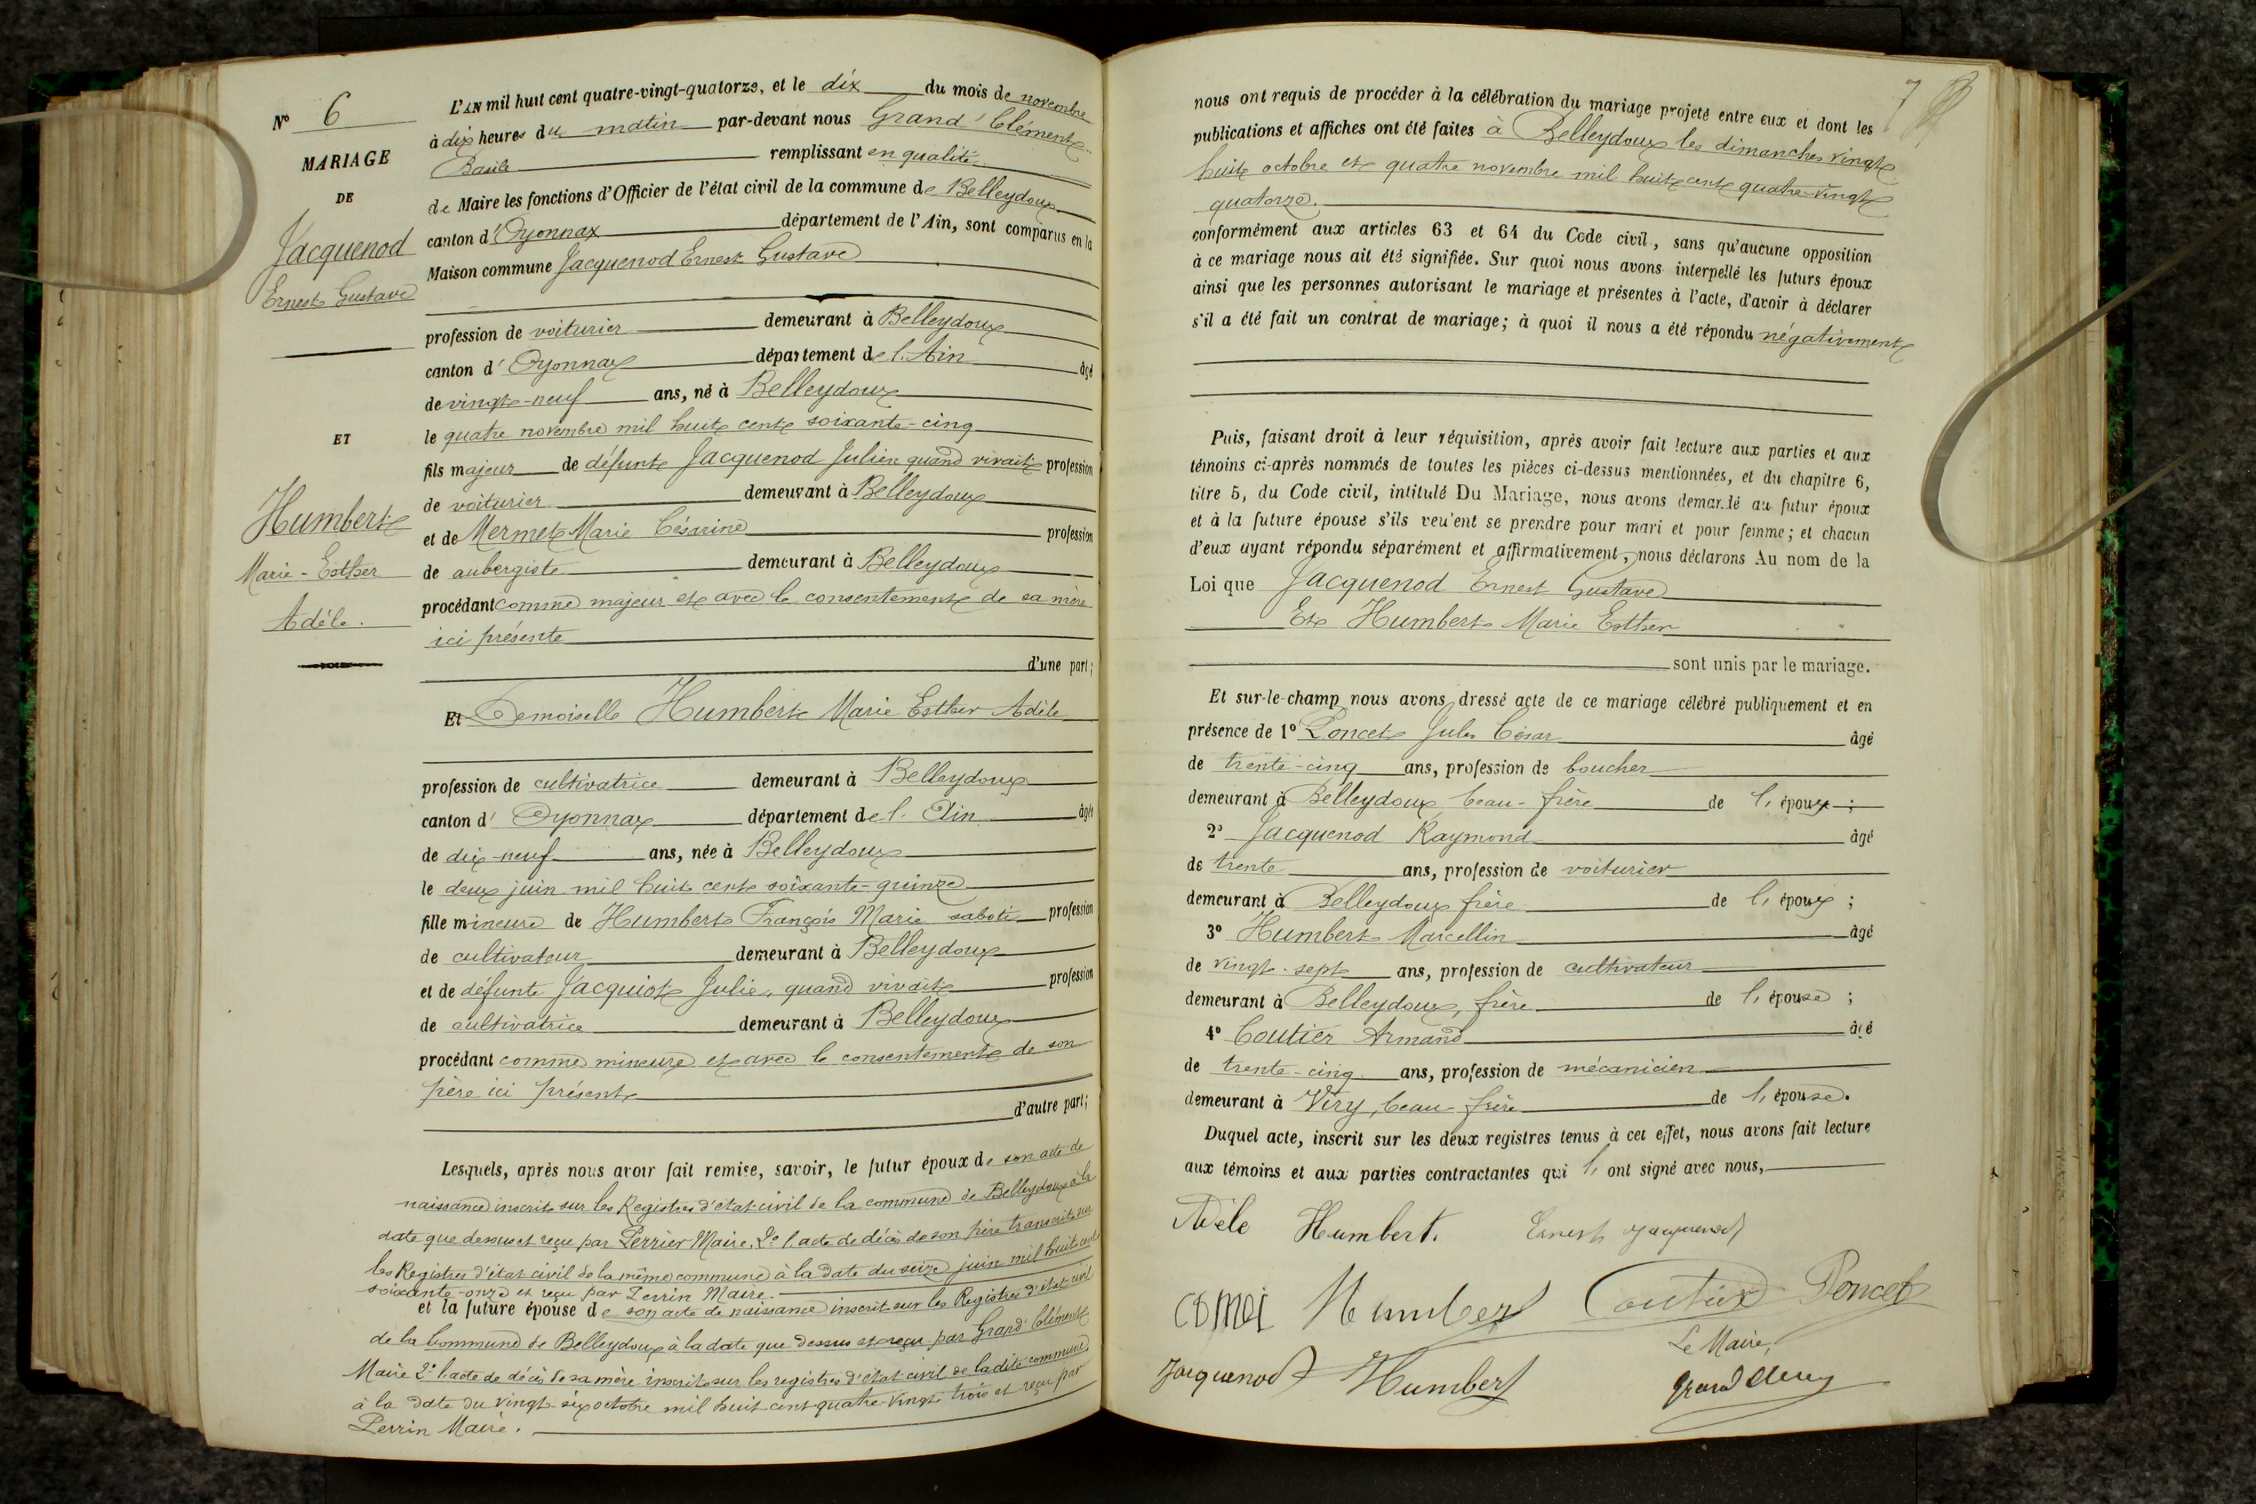 N° 6
MARIAGE
DE
Jacquenod
Ernest Gustave
ET
Humbert
Marie-Esther
Adèle.
L'AN mil huit cent quatre-vingt-quatorze, et le dix du mois de novembre
à dix heures du matin par-devant nous Grand Clément
Basile remplissant en qualité
de Maire les fonctions d'Officier de l'état civil de la commune de Belleydoux
canton d'Oyonnax département de l'Ain, sont comparus en la
Maison commune Jacquenod Ernest Gustave
profession de voiturier demeurant à Belleydoux
canton d'Oyonnax département de l'Ain âgé
de vingt-neuf ans, né à Belleydoux
le quatre novembre mil huit cent soixante-cinq
fils majeur de défunt Jacquenod Julien quand vivait profession
de voiturier demeurant à Belleydoux
et de Mermet Marie Césarine profession
de aubergiste demeurant à Belleydoux
procédant comme majeur et avec le consentement de sa mère
ici présente
d'une part;
Et Demoiselle Humbert Marie Esther Adèle
profession de cultivatrice demeurant à Belleydoux
canton d'Oyonnax département de l'Ain âgée
de dix-neuf ans, née à Belleydoux
le deux juin mil huit cent soixante-quinze
fille mineure de Humbert François Marie saboti profession
de cultivateur demeurant à Belleydoux
et de défunte Jacquiot Julie, quand vivait profession
de cultivatrice demeurant à Belleydoux
procédant comme mineure et avec le consentement de son
père ici présent
d'autre part;
Lesquels, après nous avoir fait remise, savoir, le futur époux de son acte de
naissance inscrit sur les Registres d'état civil de la commune de Belleydoux à la
date que dessus et reçu par Perrier Maire, 2° l'acte de décès de son père transcrit sur
les Registres d'état civil de la même commune à la date du seize juin mil huit cent
soixante-onze et reçu par Perrin Maire.
et la future épouse de son acte de naissance inscrit sur les Registres d'état civil
de la Commune de Belleydoux à la date que dessus et reçu par Grand Clément
Maire 2° l'acte de décès de sa mère inscrit sur les registres d'état civil de la dite commune
à la date du vingt-six octobre mil huit cent quatre-vingt trois et reçu par
Perrin Maire.
7
nous ont requis de procéder à la célébration du mariage projeté entre eux et dont les
publications et affiches ont été faites à Belleydoux les dimanches vingt
huit octobre et quatre novembre mil huit cent quatre-vingt
quatorze.
conformément aux articles 63 et 64 du Code civil, sans qu'aucune opposition
à ce mariage nous ait été signifiée. Sur quoi nous avons interpellé les futurs époux
ainsi que les personnes autorisant le mariage et présentes à l'acte, d'avoir à déclarer
s'il a été fait un contrat de mariage; à quoi il nous a été répondu négativement
Puis, faisant droit à leur réquisition, après avoir fait lecture aux parties et aux
témoins ci-après nommés de toutes les pièces ci-dessus mentionnées, et du chapitre 6,
titre 5, du Code civil, intitulé Du Mariage, nous avons demandé au futur époux
et à la future épouse s'ils veulent se prendre pour mari et pour femme; et chacun
d'eux ayant répondu séparément et affirmativement, nous déclarons Au nom de la
Loi que Jacquenod Ernest Gustave
Et Humbert Marie Esther
sont unis par le mariage.
Et sur-le-champ nous avons dressé acte de ce mariage célébré publiquement et en
présence de 1° Poncet Jules César âgé
de trente-cinq ans, profession de boucher
demeurant à Belleydoux beau-frère de l'époux;
2° Jacquenod Raymond âgé
de trente ans, profession de voiturier
demeurant à Belleydoux frère de l'époux;
3° Humbert Marcellin âgé
de vingt-sept ans, profession de cultivateur
demeurant à Belleydoux, frère de l'épouse;
4° Coutier Armand âgé
de trente-cinq ans, profession de mécanicien
demeurant à Viry, beau-frère de l'épouse.
Duquel acte, inscrit sur les deux registres tenus à cet effet, nous avons fait lecture
aux témoins et aux parties contractantes qui l'ont signé avec nous,
Adèle Humbert. Ernest Jacquenod
Humbert Coutier Poncet
Le Maire,
Jacquenod Humbert